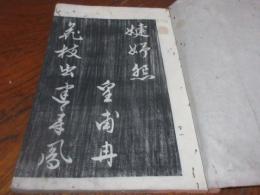 婕妤怨
皇甫冉
花枝出建章鳳